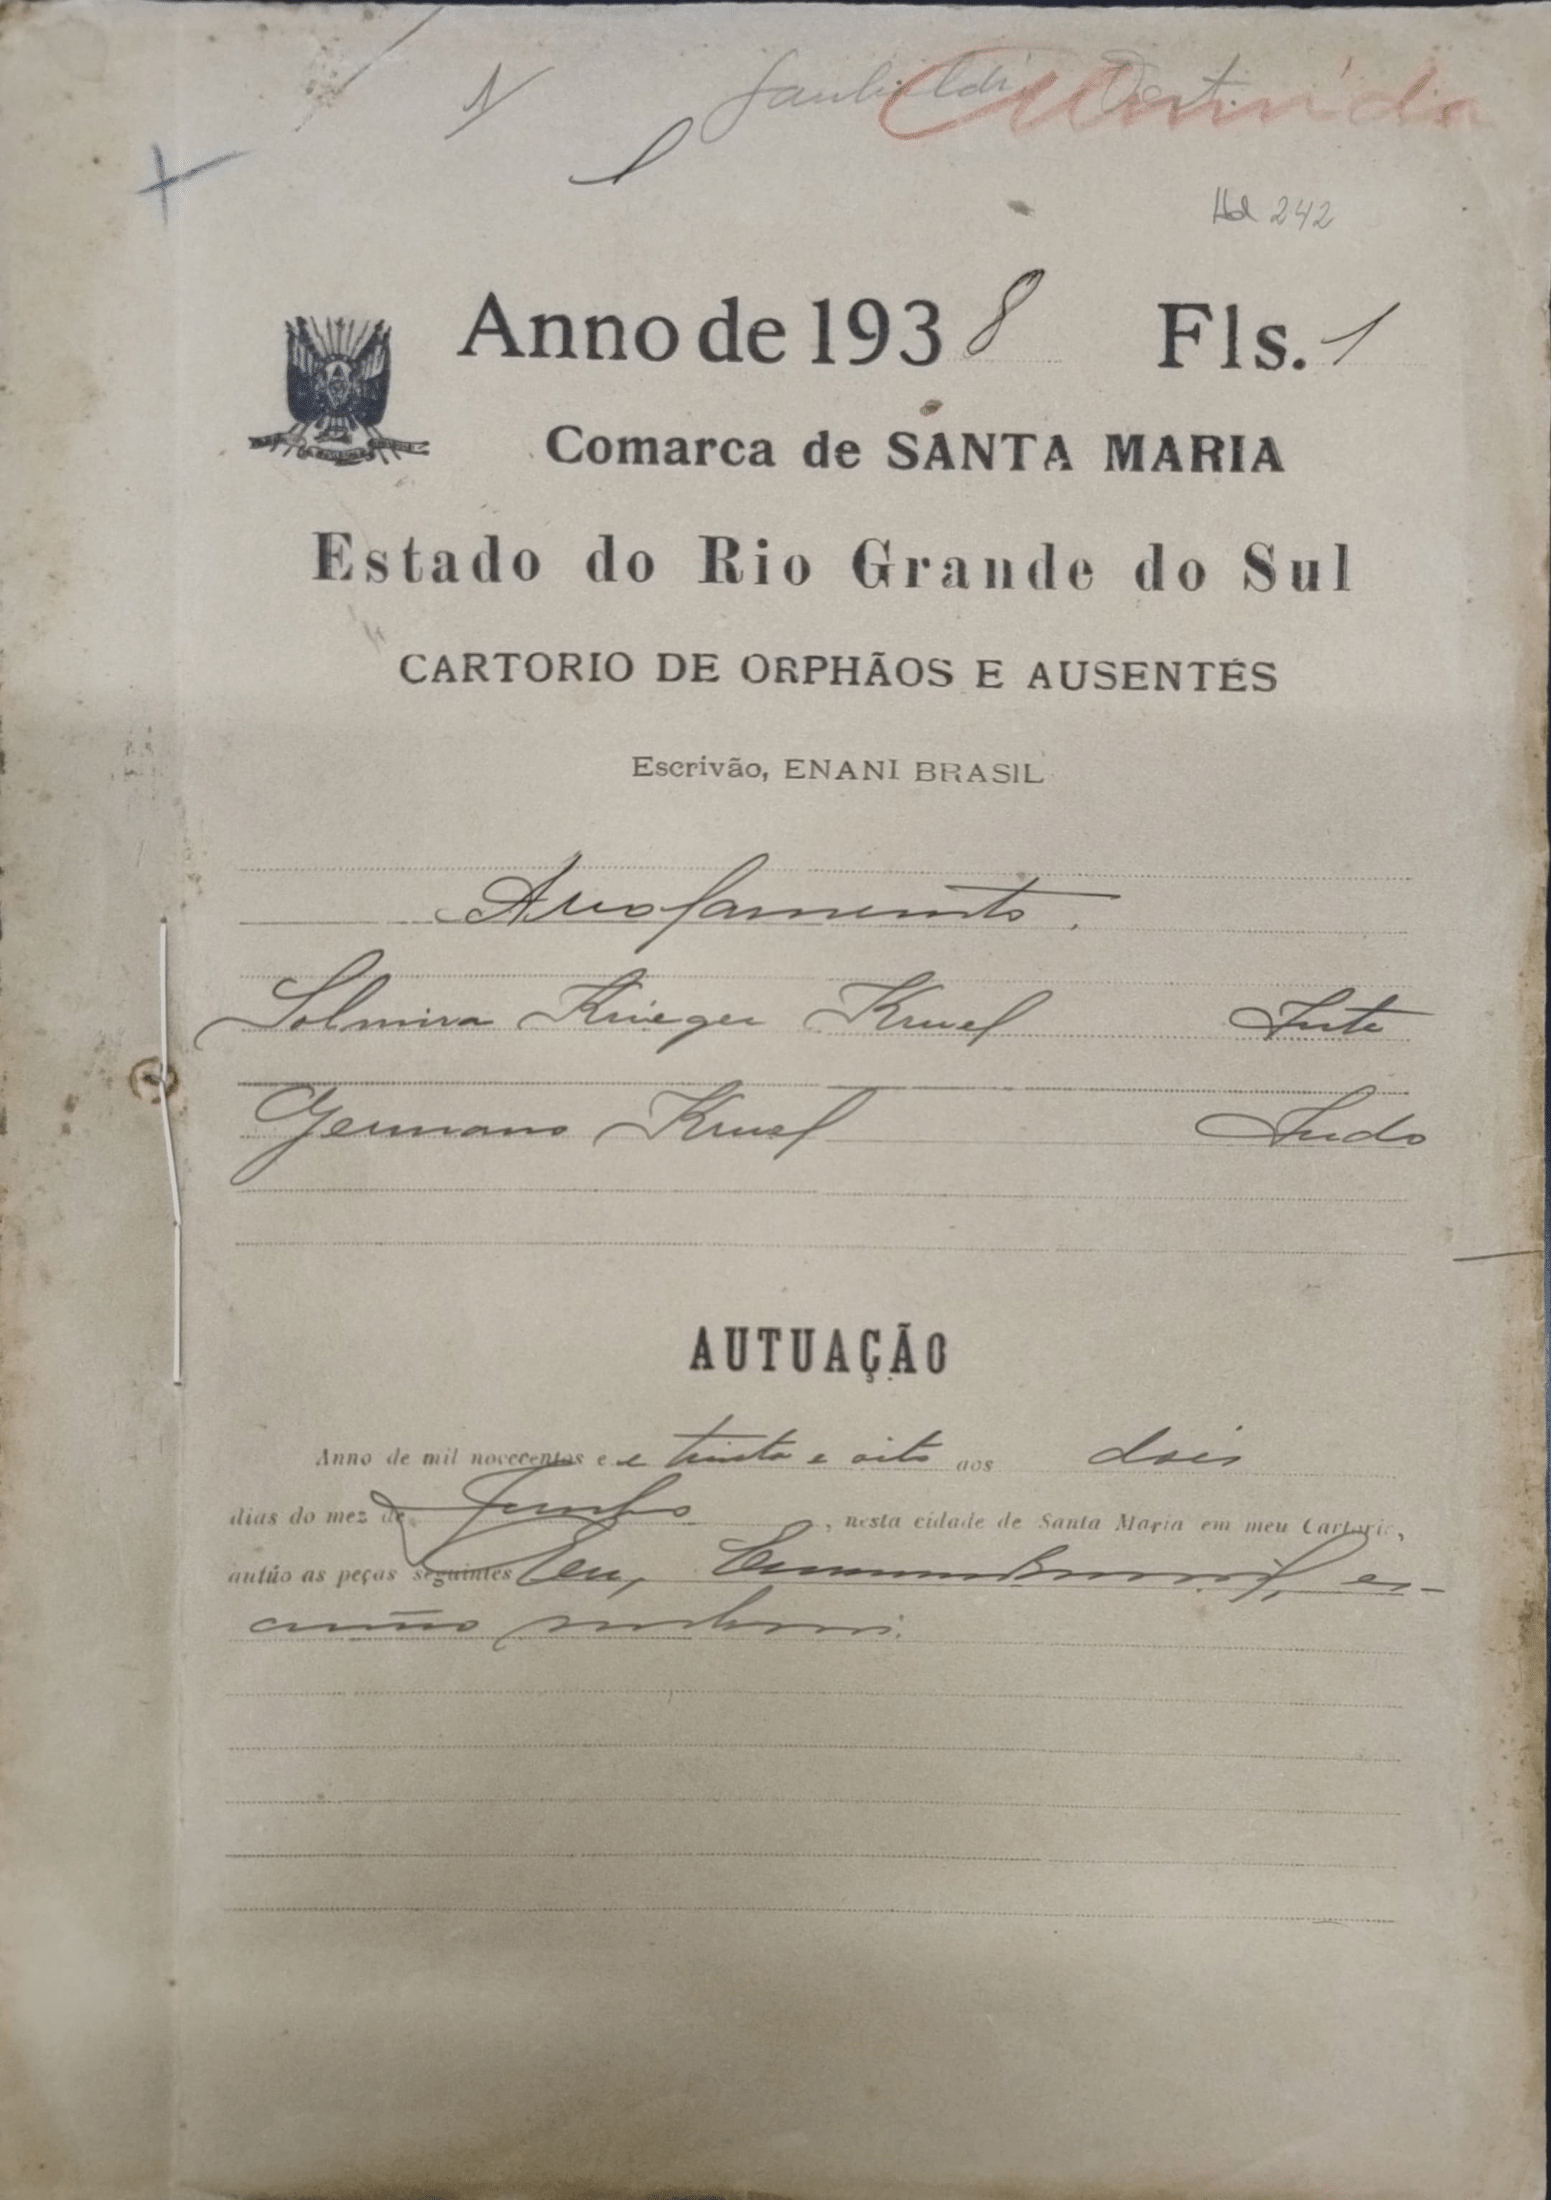 Nd 242
Anno de 1938 Fls. 1
Comarca de SANTA MARIA
Estado do Rio Grande do Sul
CARTORIO DE ORPHÃOS E AUSENTES
Escrivão, ENANI BRASIL
Arrolamento.
Solmira Krieger Kruel Inte
Germano Kruel Indo
AUTUAÇÃO
Anno de mil novecentos e e trinta e oito aos dois
dias do mez de Junho, nesta cidade de Santa Maria em meu Cartorio,
autúo as peças seguintes Eu, es-
crivão